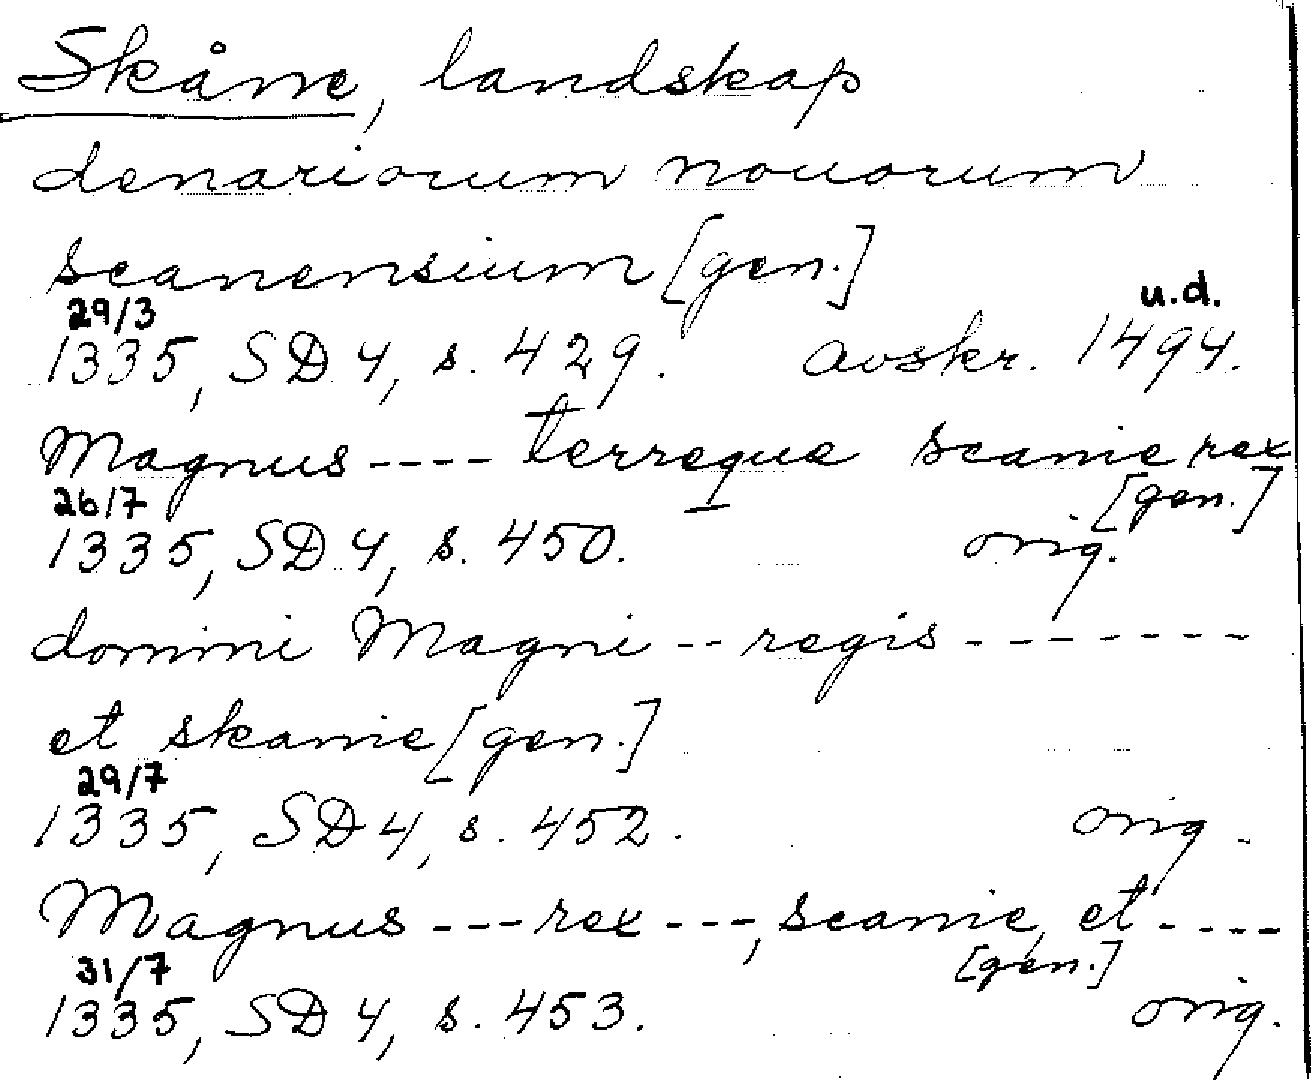 Skåne, landskap
denariorum nouorum
scanensium [gen.]
29/3 u.d.
1335, SD 4, s. 429. avskr. 1494.
Magnus ---- terreque scanie rex
26/7 [gen.]
1335, SD 4, s. 450. orig.
domini Magni -- regis -------
et skanie [gen.]
29/7
1335, SD 4, s. 452. orig.
Magnus --- rex ---, scanie, et ----
31/7 [gen.]
1335, SD 4, s. 453. orig.